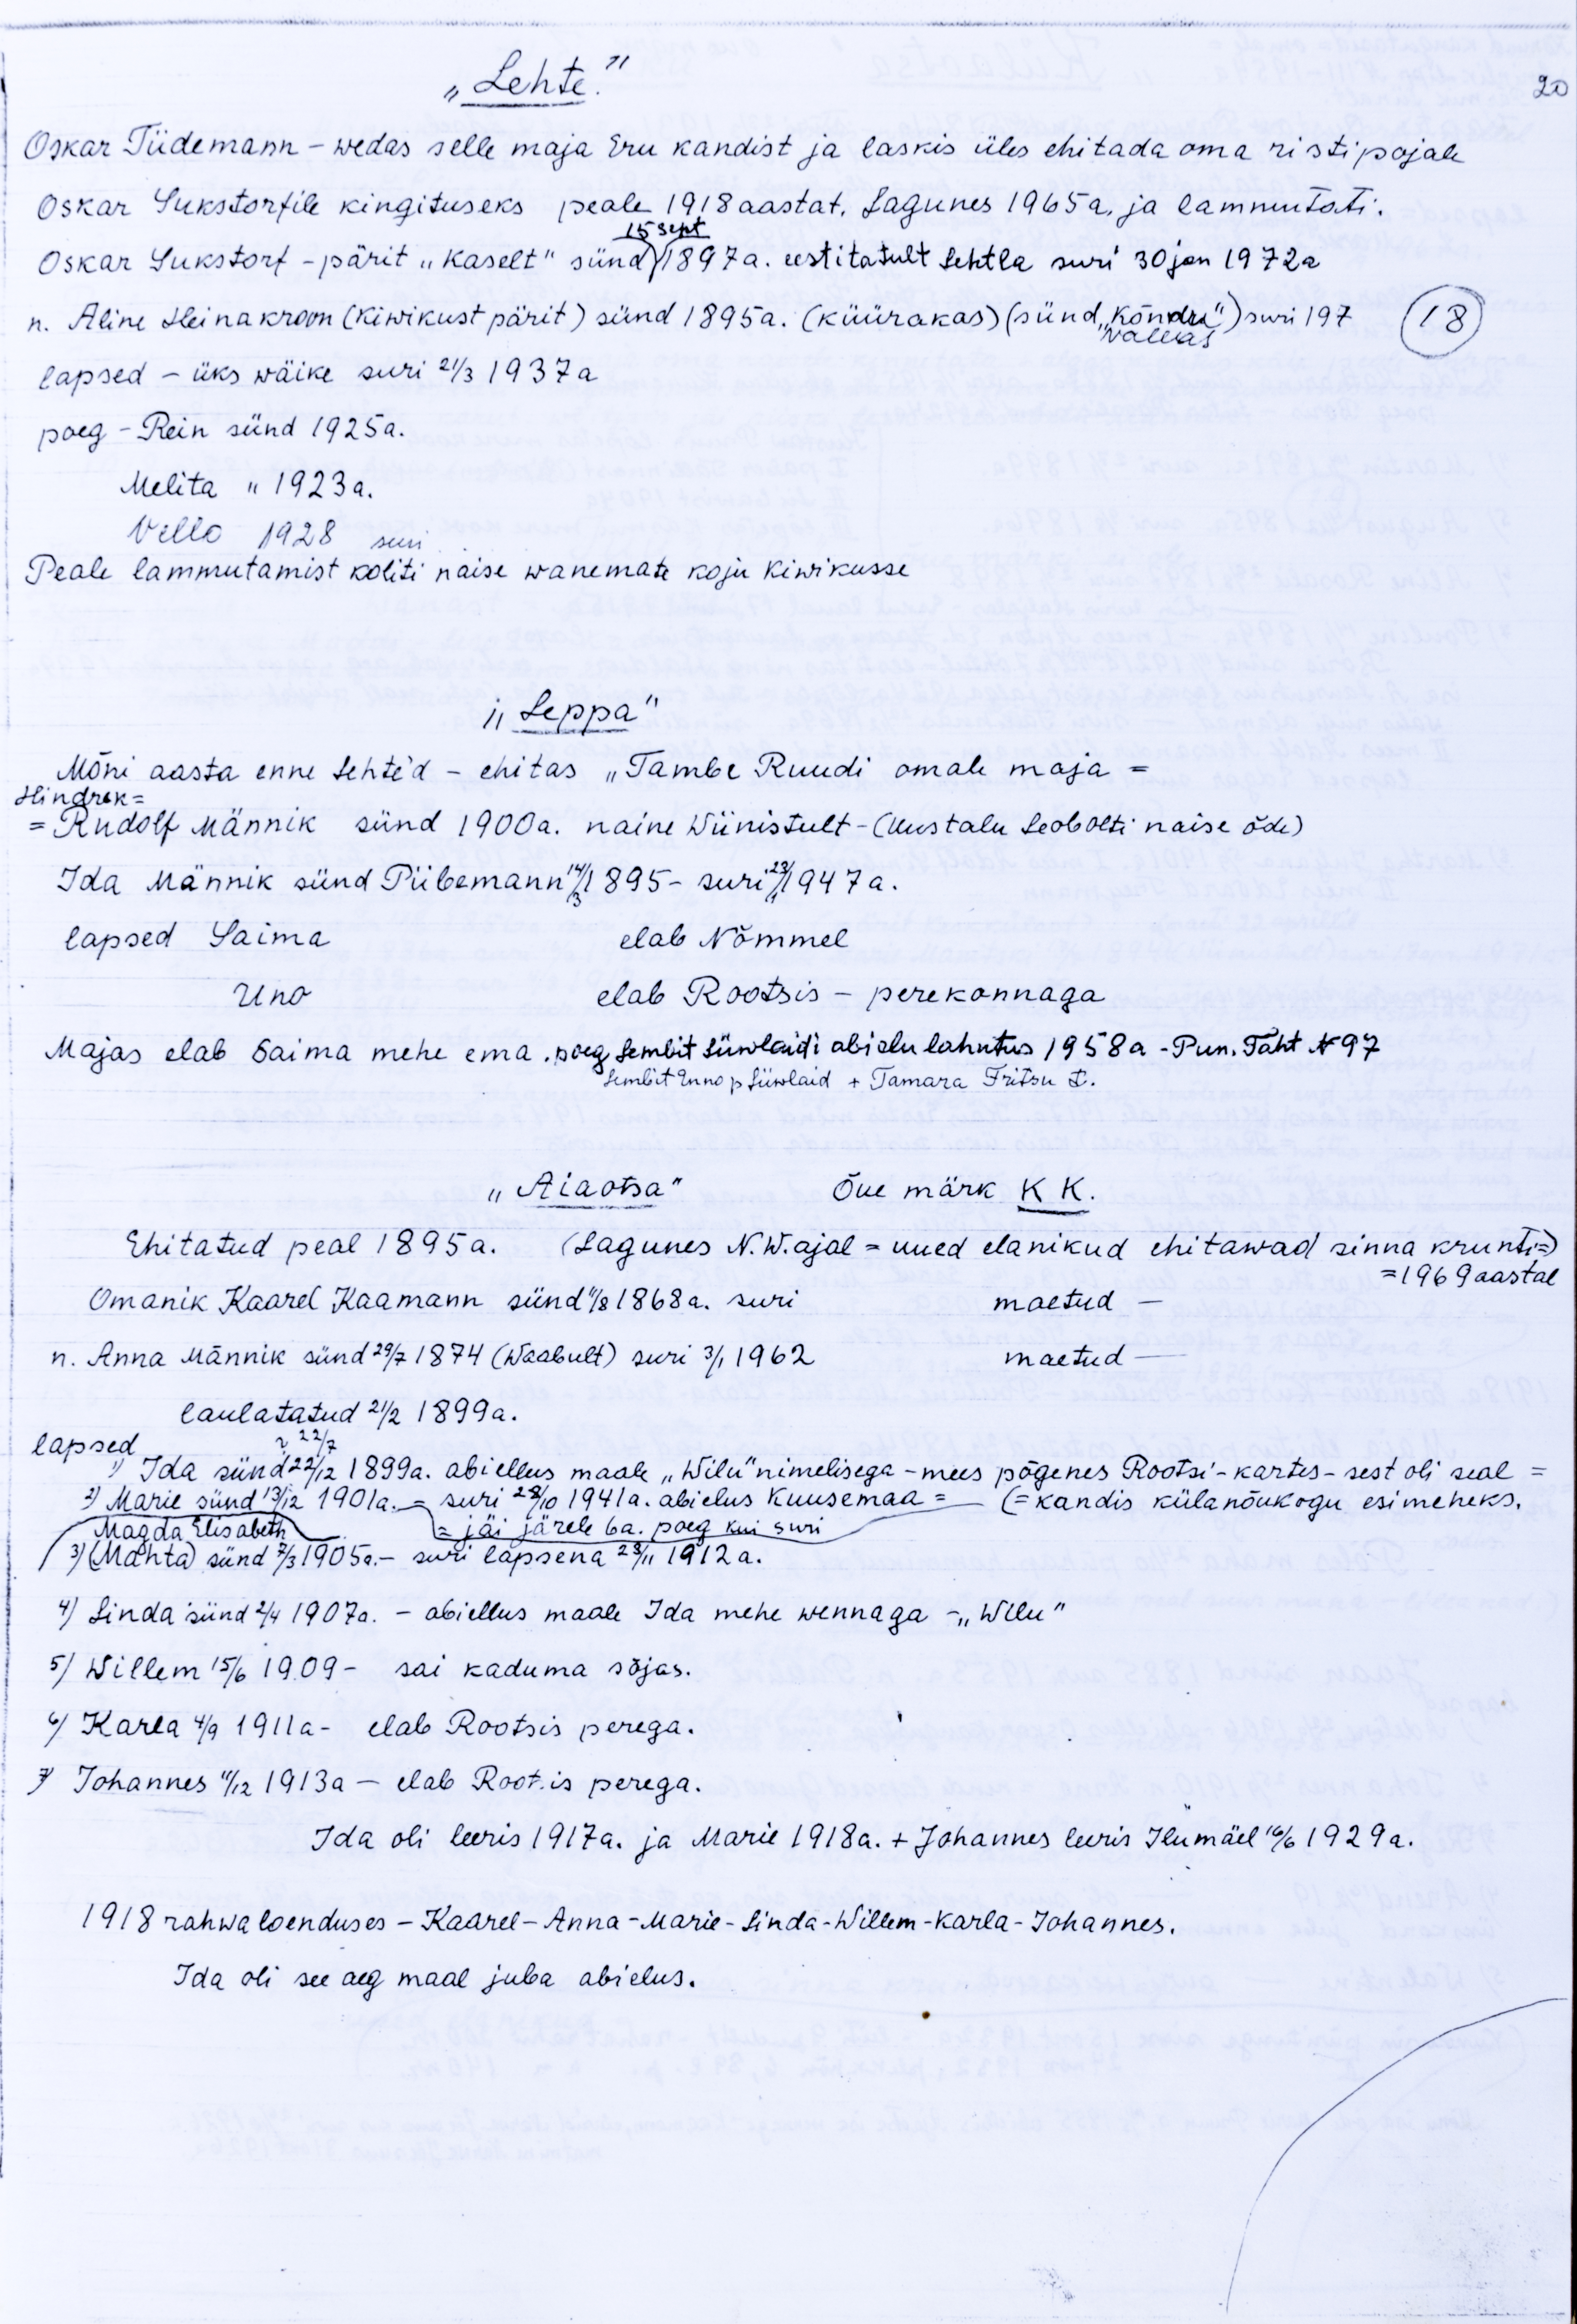 20
„Lehte."
Oskar Tiidemann – wedas selle maja Eru kandist ja laskis üles ehitada oma ristipojale
Oskar Sukstorfile kingituseks peale 1918 aastat. Lagunes 1965a. ja lammutati.
15 sept
Oskar Sukstorf – pärit „Kaselt" sünd 1897a. eestitatult Lehtla suri 30 jan 1972a
n. Aline Heinakroon (Kiwikust pärit) sünd 1895a. (küürakas) (sünd „Kõndu") suri 197
Vallas
18
lapsed – üks wäike suri 21/3 1937a
poeg – Rein sünd 1925a.
Melita " 1923a.
Vello 1928 suri
Peale lammutamist koliti naise wanemate koju Kiwikusse
„Leppa"
Mõni aasta enne Lehte'd – ehitas „Tambe Ruudi omale maja =
Hindrek =
= Rudolf Männik sünd 1900a. naine Wiinistult – (Uustalu Leobolti naise õde)
Ida Männik sünd Piibemann 14/3 1895 – suri 23/1 1947a.
lapsed Saima elab Nõmmel
Uno elab Rootsis – perekonnaga
Majas elab Saima mehe ema. poeg Lembit Liiwlaidi abielu lahutus 1958a - Pun. Täht № 97
Lembit Enno p Liiwlaid + Tamara Fritsu t.
„Aiaotsa" Õue märk K K.
Ehitatud peal 1895a. (Lagunes N.W. ajal = uued elanikud ehitawad sinna krunti =)
= 1969 aastal
Omanik Kaarel Kaamann sünd 1/8 1868a. suri maetud –
n. Anna Männik sünd 29/7 1874 (Waabult) suri 3/1 1962 maetud –
laulatatud 21/2 1899a.
lapsed 22/7
1) Ida sünd 22/12 1899a. abiellus maale „Wilu" nimelisega – mees põgenes Rootsi – kartes – sest oli seal =
2) Marie sünd 13/12 1901a. = suri 28/10 1941a. abielus Kuusemaa = (= kandis külanõukogu esimeheks.
Magda Elisabeth = jäi järele 6a. poeg kui suri
3) (Mahta) sünd 7/3 1905a. – suri lapsena 23/11 1912a.
4) Linda sünd 2/4 1907a. – abiellus maale Ida mehe wennaga – „Wilu"
5) Willem 15/6 1909 – sai kaduma sõjas.
6) Karla 4/9 1911a – elab Rootsis perega.
7) Johannes 11/12 1913a – elab Rootsis perega.
Ida oli leeris 1917a. ja Marie 1918a. + Johannes leeris Ilumäel 16/6 1929a.
1918 rahwaloenduses – Kaarel – Anna – Marie – Linda – Willem – Karla – Johannes.
Ida oli see aeg maal juba abielus.